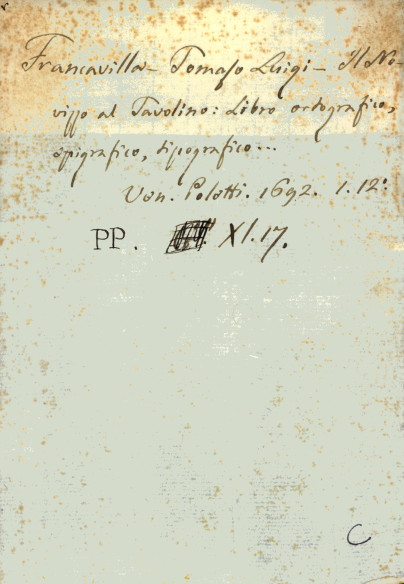 Francavilla - Tomaso Luigi - Il No-
vizio al Tavolino: Libro ortografico,
epigrafico, tipografico...
Ven. Poletti. 1692. 1. 12°.
PP. XI.17.
C